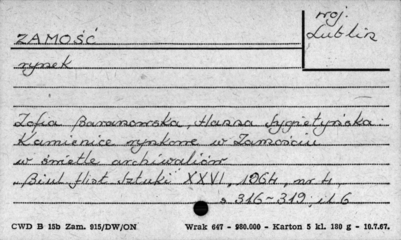 woj.
Lublin
ZAMOŚĆ
rynek
Zofia Baranowska, Hanna Sygietyńska:
Kamienice rynkowe w Zamościu
w świetle archiwaliów
"Biul. Hist. Sztuki" XXVI, 1964, nr 4,
s. 316-319, il. 6
CWD B 15b Zam. 915/DW/ON Wrak 647 - 980.000 - Karton 5 kl. 180 g - 10.7.67.